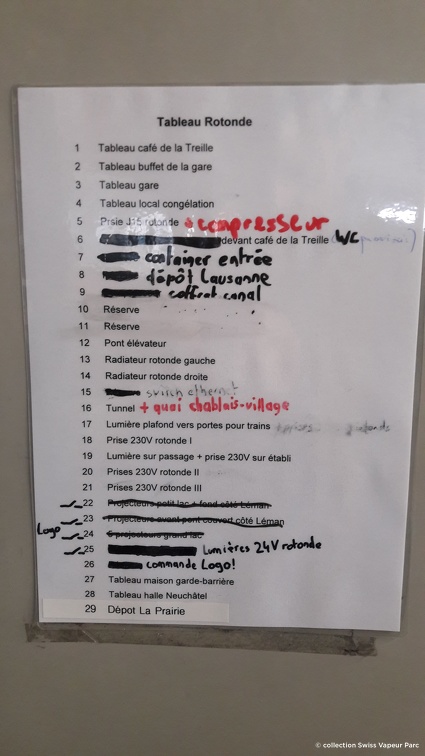 Tableau Rotonde
1 Tableau café de la Treille
2 Tableau buffet de la gare
3 Tableau gare
4 Tableau local congélation
5 Prsie J15 rotonde + compresseur
6 devant café de la Treille WC
7 container entrée
8 dépôt Lausanne
9 coffret canal
10 Réserve
11 Réserve
12 Pont élévateur
13 Radiateur rotonde gauche
14 Radiateur rotonde droite
15 switch ethernet
16 Tunnel + quai chablais-village
17 Lumière plafond vers portes pour trains
18 Prise 230V rotonde I
19 Lumière sur passage + prise 230V sur établi
20 Prises 230V rotonde II
21 Prises 230V rotonde III
22 Projecteurs petit lac + fond côté Léman
23 Projecteurs avant pont couvert côté Léman
Logo 24 6 projecteurs grand lac
25 Lumières 24V rotonde
26 commande Logo!
27 Tableau maison garde-barrière
28 Tableau halle Neuchâtel
29 Dépot La Prairie
© collection Swiss Vapeur Parc